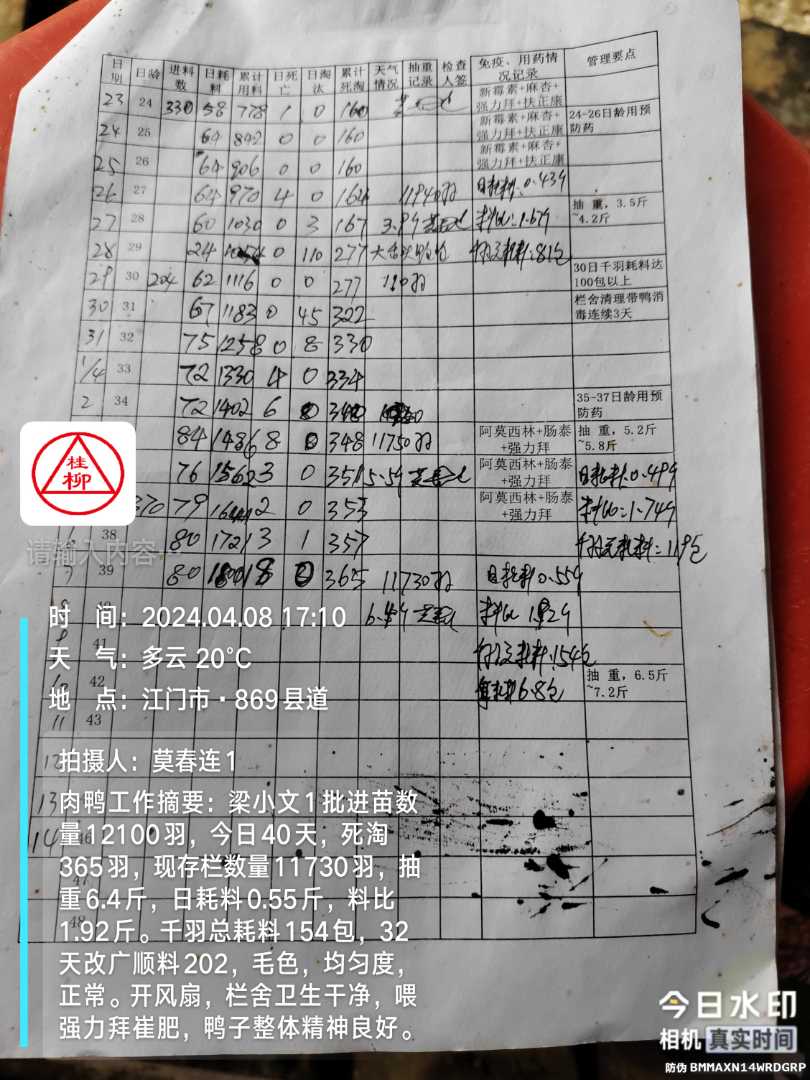 日期 日龄 进料数 日耗料 累计用料 日死亡 日淘汰 累计死淘 天气情况 抽重记录 检查人签 免疫、用药情况记录 管理要点
23 24 330 58 778 1 0 160 新霉素+麻杏+强力拜+扶正康
24 25 64 842 0 0 160 新霉素+麻杏+强力拜+扶正康 24-26日龄用预防药
25 26 64 906 0 0 160 新霉素+麻杏+强力拜+扶正康
26 27 64 970 4 0 164 11940羽 日耗料:0.43斤
27 28 60 1030 0 3 167 3.9斤 料比:1.57斤 抽重,3.5斤~4.2斤
28 29 24 1054 0 110 277 千羽总耗料:81包
29 30 204 62 1116 0 0 277 110羽 30日千羽耗料达100包以上
30 31 67 1183 0 45 322 栏舍清理带鸭消毒连续3天
31 32 75 1258 0 8 330
1/4 33 72 1330 4 0 334
2 34 72 1402 6 0 340 35-37日龄用预防药
84 1486 8 0 348 11750羽 阿莫西林+肠泰+强力拜 抽重,5.2斤~5.8斤
76 1562 3 0 351 5.5斤 阿莫西林+肠泰+强力拜 日耗料:0.49斤
370 79 1641 2 0 353 阿莫西林+肠泰+强力拜 料比:1.74斤
38 80 1721 3 1 357 千羽总耗料:119包
7 39 80 1801 8 0 365 11730羽 日耗料0.55斤
6.4斤 料比1.92斤
41 千羽总耗料:154包
10 42 6.8包 抽重,6.5斤~7.2斤
11 43
12
13
14
47
48
桂柳
请输入内容
时 间:2024.04.08 17:10
天 气:多云 20°C
地 点:江门市·869县道
拍摄人:莫春连1
肉鸭工作摘要:梁小文1批进苗数
量12100羽,今日40天,死淘
365羽,现存栏数量11730羽,抽
重6.4斤,日耗料0.55斤,料比
1.92斤。千羽总耗料154包,32
天改广顺料202,毛色,均匀度,
正常。开风扇,栏舍卫生干净,喂
强力拜崔肥,鸭子整体精神良好。
今日水印
相机 真实时间
防伪 BMMAXN14WRDGRP